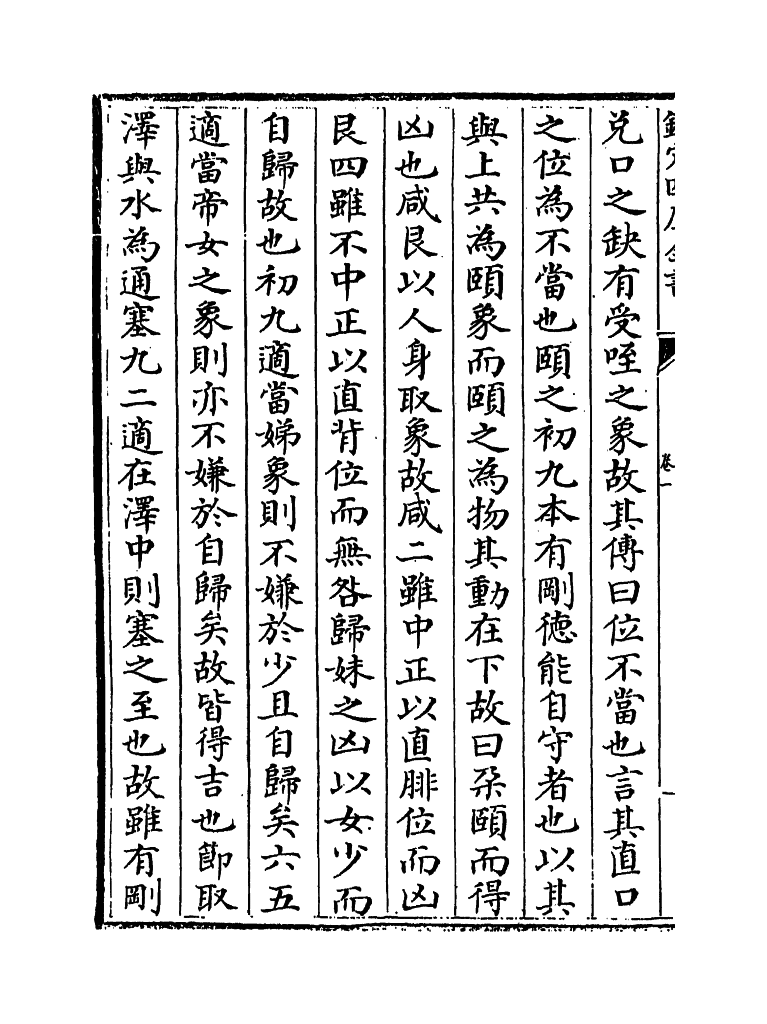 兌口之缺有受咥之象故其傳曰位不當也言其直口
之位為不當也頤之初九本有剛德能自守者也以其
與上共為頤象而頤之為物其動在下故曰朶頤而得
凶也咸艮以人身取象故咸二雖中正以直腓位而凶
艮四雖不中正以直背位而無咎歸妹之凶以女少而
自歸故也初九適當娣象則不嫌於少且自歸矣六五
適當帝女之象則亦不嫌於自歸矣故皆得吉也節取
澤與水為通塞九二適在澤中則塞之至也故雖有剛
卷一